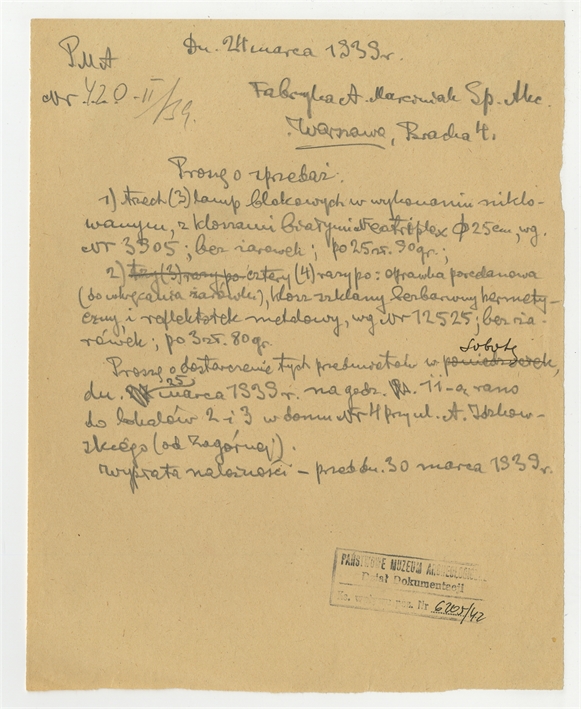 Dn. 24 marca 1939 r.
PMA
Nr 420-II/39.
Fabryka A. Marciniak Sp. Akc.
Warszawa, Bracka 4.
Proszę o sprzedaż.
1) trzech (3) lamp blokowych w wykonaniu niklo-
wanym, z kloszami białymi teatriplex ϕ 25 cm, wg.
Nr 3905; bez żarówek; po 25 zł. 90 gr.;
2) trzy (3) razy po cztery (4) razy po: oprawka porcelanowa
(do wkręcania żarówki), klosz szklany bezbarwny hermety-
czny i reflektorek metalowy, wg. Nr 12525; bez ża-
rówek; po 3 zł. 80 gr.
sobotę
Proszę o dostarczenie tych przedmiotów w poniedziałek,
dn. 25 marca 1939 r. na godz. 11-ą rano
do lokalów 2 i 3 w domu Nr 4 przy ul. A. Idzkow-
skiego (od Zagórnej).
Wypłata należności – przed dn. 30 marca 1939 r.
PAŃSTWOWE MUZEUM ARCHEOLOGICZNE
Dział Dokumentacji
Nr 6205/42